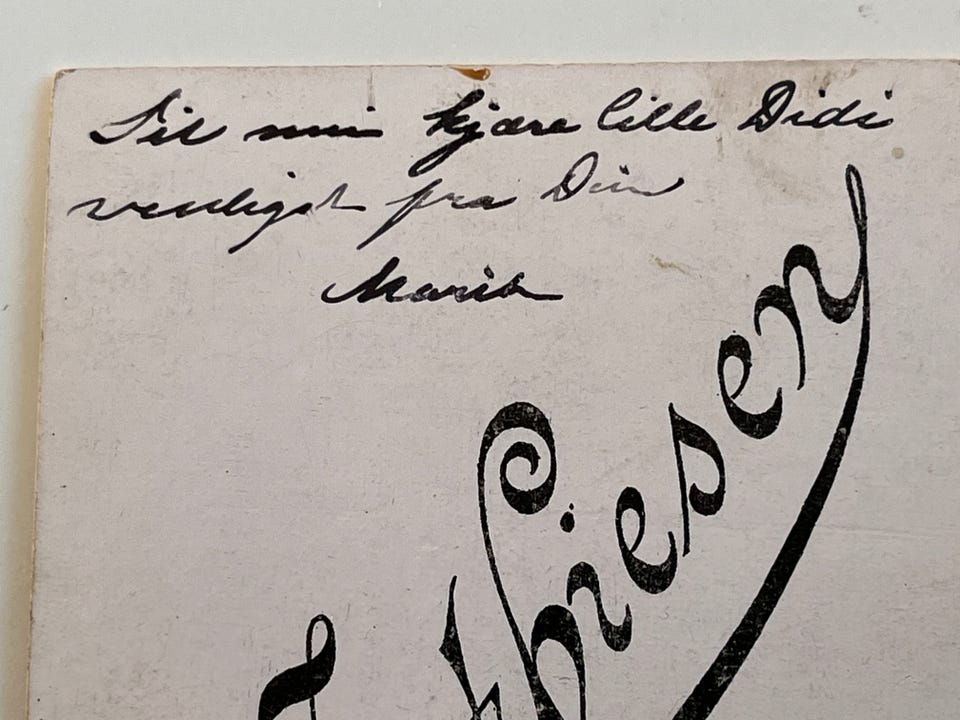 Til min kjære lille Didi
venligst fra Din
Marie
Thiesen